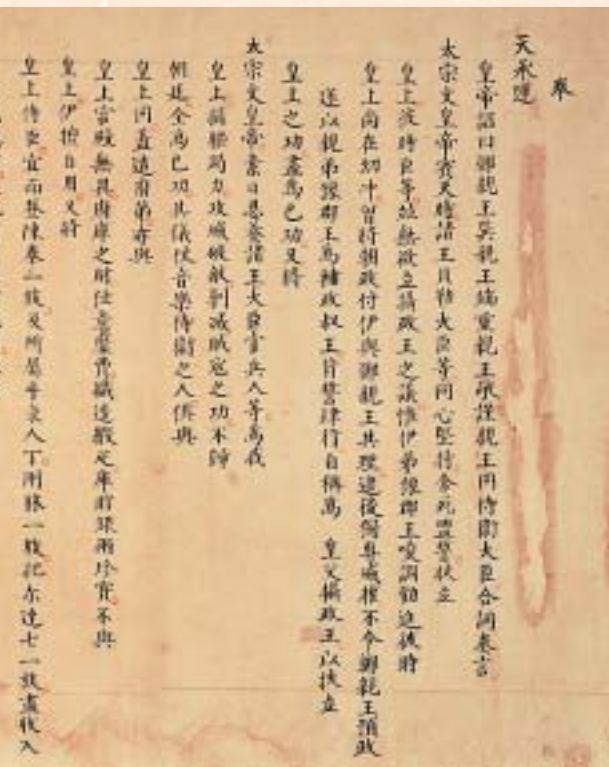 奉
天承運
皇帝詔曰鄭親王巽親王端重親王敬謹親王同侍衛大臣合詞奏言
太宗文皇帝賓天時諸王貝勒大臣等同心堅持舍死盟誓扶立
皇上彼時臣等並無欲立攝政王之議惟伊弟豫郡王唆調勸進彼時
皇上尚在幼冲曾將朝政付伊與鄭親王共理逮後獨專威權不令鄭親王預政
遂以親弟豫郡王為輔政叔王背誓肆行自稱為 皇父攝政王以扶立
皇上之功盡為己功又將
太宗文皇帝素日恩養諸王大臣官兵人等為我
皇上捐軀竭力攻城破敵剿滅賊寇之功不歸
朝廷全為己功其儀仗音樂侍衛之人俱與
皇上同蓋造府第亦與
皇上宮殿無異府庫之財任意糜費織造緞疋庫貯銀兩珍寶不與
皇上伊擅自用又將
皇上侍臣